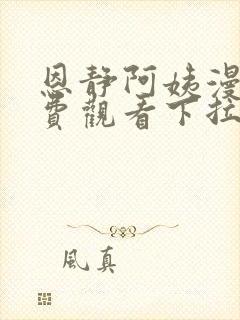 恩靜阿姨漫
費觀看下拉
風真